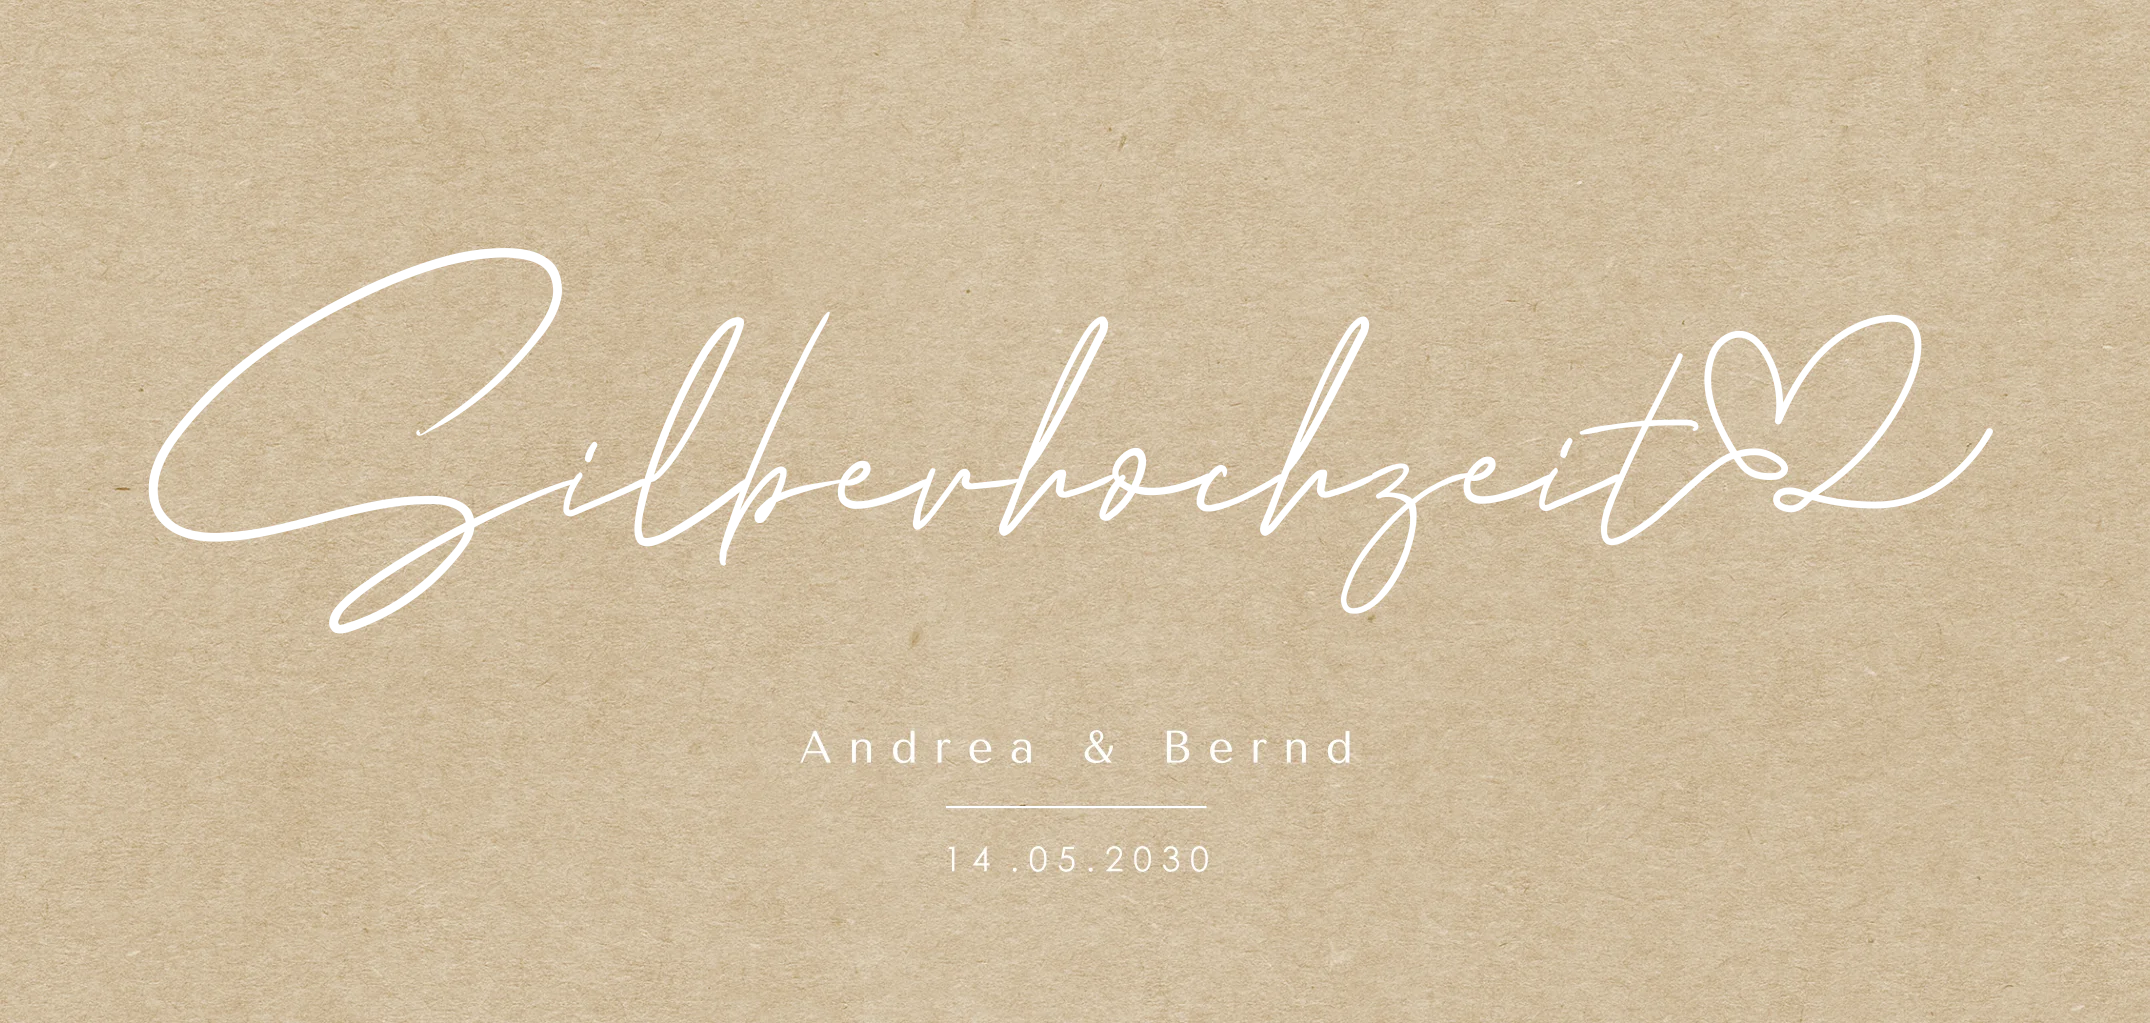 Silberhochzeit
Andrea & Bernd
14 .05.2030